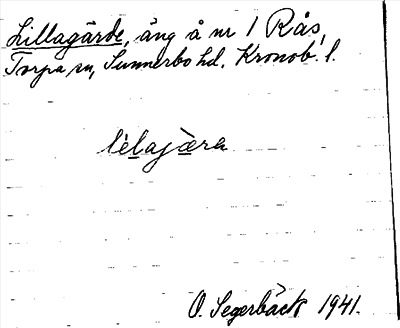 Lillagärde, äng å nr 1 Rås,
Torpa sn, Sunnerbo hd. Kronob. l.
lèlajæra
O. Segerbäck 1941.